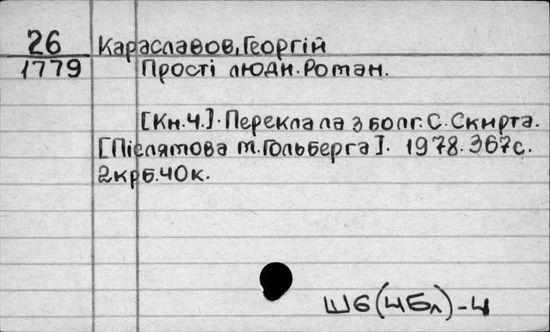 26
1779
Караславов, Георгій
Прості люди. Роман.
[Кн.4.]. Переклала з болг. С. Скирта.
[Післямова М. Гольберга]. 1978. 367с.
2крб.40к.
Ш6(4Бл)-4